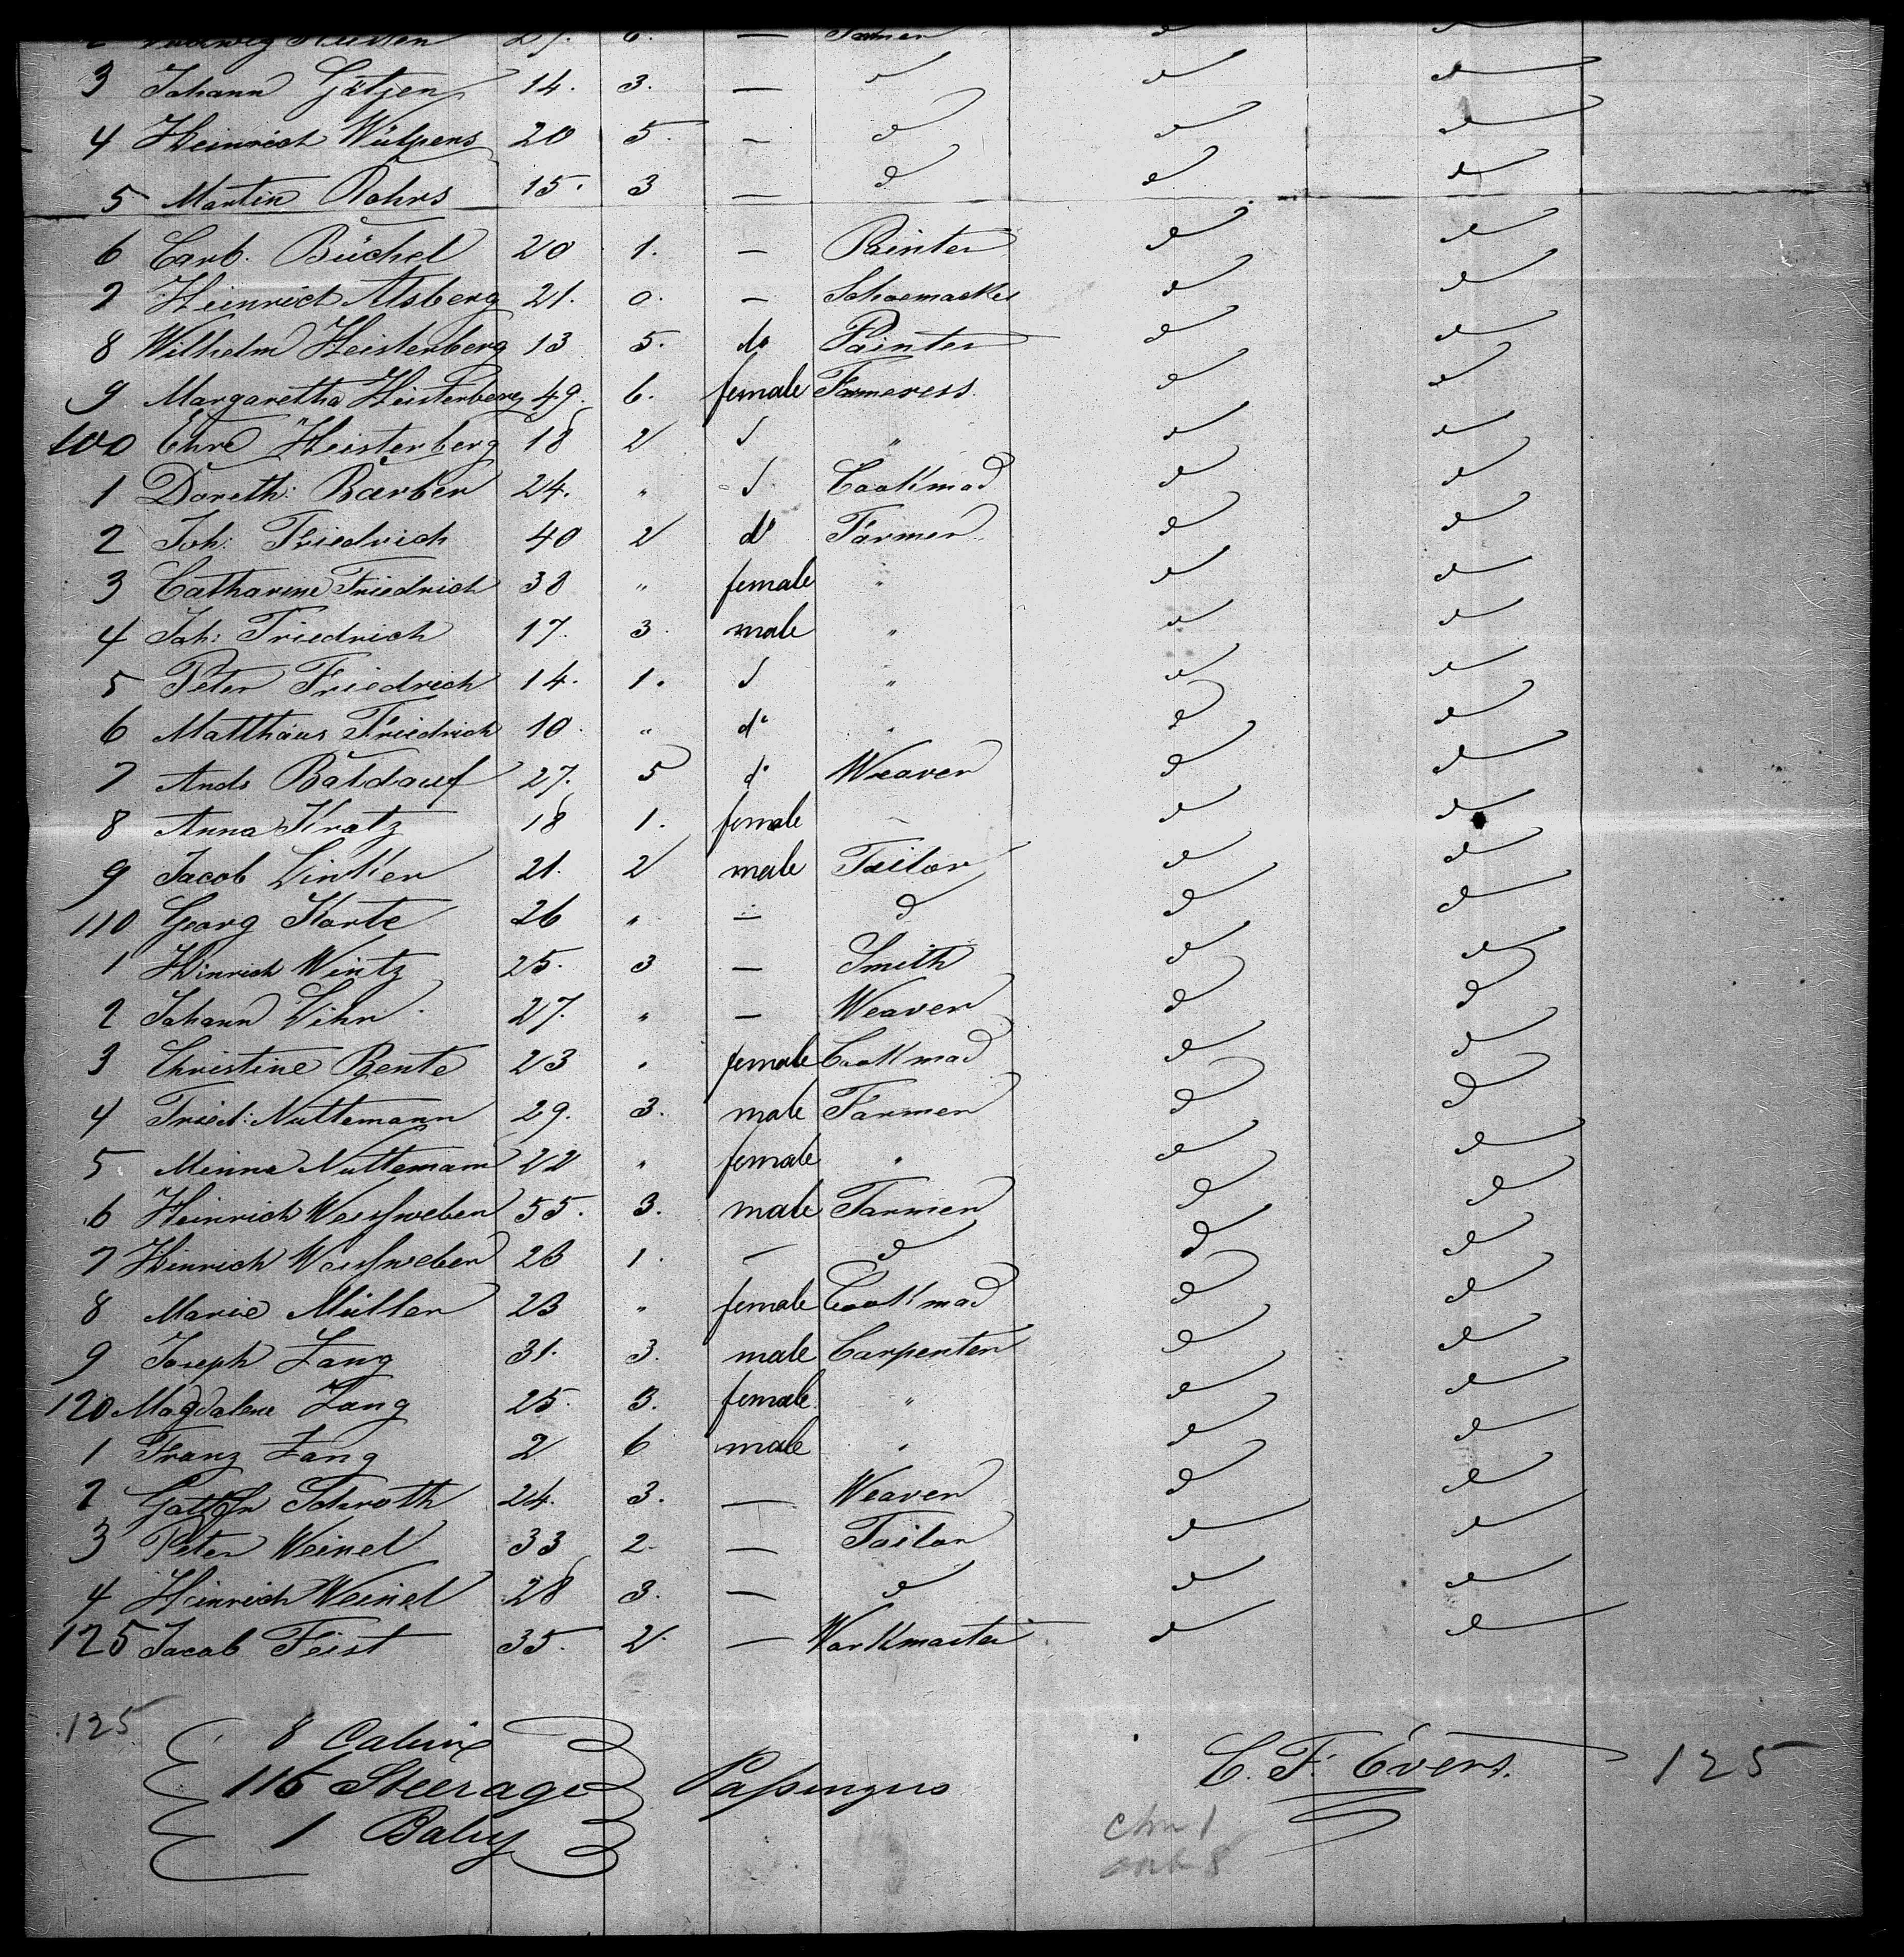 29. 6. — Farmer d d
3 Johann Götzen 14. 3. — d d d
4 Heinrich Wülpens 20 5. — d d d
5 Martin Rohrs 15. 3 — d d d
6 Carl. Büchel 20 1. — Painter d d
7 Heinrich Alsberg 21. 0. — Schoemacker d d
8 Wilhelm Heisterberg 13 5. do Painter d d
9 Margaretha Heisterberg 49. 6. female Farmeress. d d
100 Ehre Heisterberg 18 2 d " d d
1 Doreth: Barber 24. " d Cookmad d d
2 Joh: Friedrich 40 2 do Farmer d d
3 Catharine Friedrich 38 " female " d d
4 Joh: Friedrich 17. 3. male " d d
5 Peter Friedrich 14. 1. d " d d
6 Matthäus Friedrich 10. " do " d d
7 Ands Baldauf 27. 5 do Weaver d d
8 Anna Kratz 18 1. female d d
9 Jacob Linker 21. 2 male Tailor d d
110 Georg Korte 26 " — d d d
1 Heinrich Wintz 25. 3 — Smith d d
2 Johann Lihr 27. " — Weaver d d
3 Christine Bente 23 " female Cookmad d d
4 Fried: Nuttemann 29. 3. male Farmer d d
5 Minna Nuttemann 22 " female " d d
6 Heinrich Weissweber 55. 3. male Farmer d d
7 Heinrich Weissweber 23 1. — d d d
8 Marie Müller 23 " female Cookmad d d
9 Joseph Zang 31. 3. male Carpenter d d
120 Magdalene Zang 25. 3. female " d d
1 Franz Zang 2 6 male " d d
2 Schroth 24. 3. — Weaver d d
3 Peter Weinel 33 2. — Tailor d d
4 Heinrich Weinel 28 3. — d d d
125 Jacob Feist 35. 2. — Workmaster d d
125
8 Cabin
116 Steerage Passengers C. F. Evers. 125
1 Baby